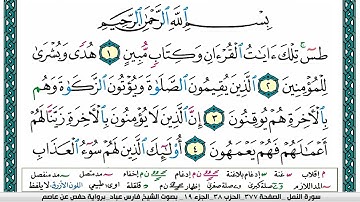 بِسْمِ ٱللَّهِ ٱلرَّحْمَٰنِ ٱلرَّحِيمِ
طسٓ تِلْكَ ءَايَٰتُ ٱلْقُرْءَانِ وَكِتَابٍ مُّبِينٍ ١ هُدًى وَبُشْرَىٰ
لِلْمُؤْمِنِينَ ٢ ٱلَّذِينَ يُقِيمُونَ ٱلصَّلَوٰةَ وَيُؤْتُونَ ٱلزَّكَوٰةَ وَهُم
بِٱلْءَاخِرَةِ هُمْ يُوقِنُونَ ٣ إِنَّ ٱلَّذِينَ لَا يُؤْمِنُونَ بِٱلْءَاخِرَةِ زَيَّنَّا لَهُمْ
أَعْمَٰلَهُمْ فَهُمْ يَعْمَهُونَ ٤ أُو۟لَٰٓئِكَ ٱلَّذِينَ لَهُمْ سُوٓءُ ٱلْعَذَابِ
سورة النمل الصفحة ٣٧٧ الحزب ٣٨ الجزء ١٩ بصوت الشيخ فارس عباد برواية حفص عن عاصم